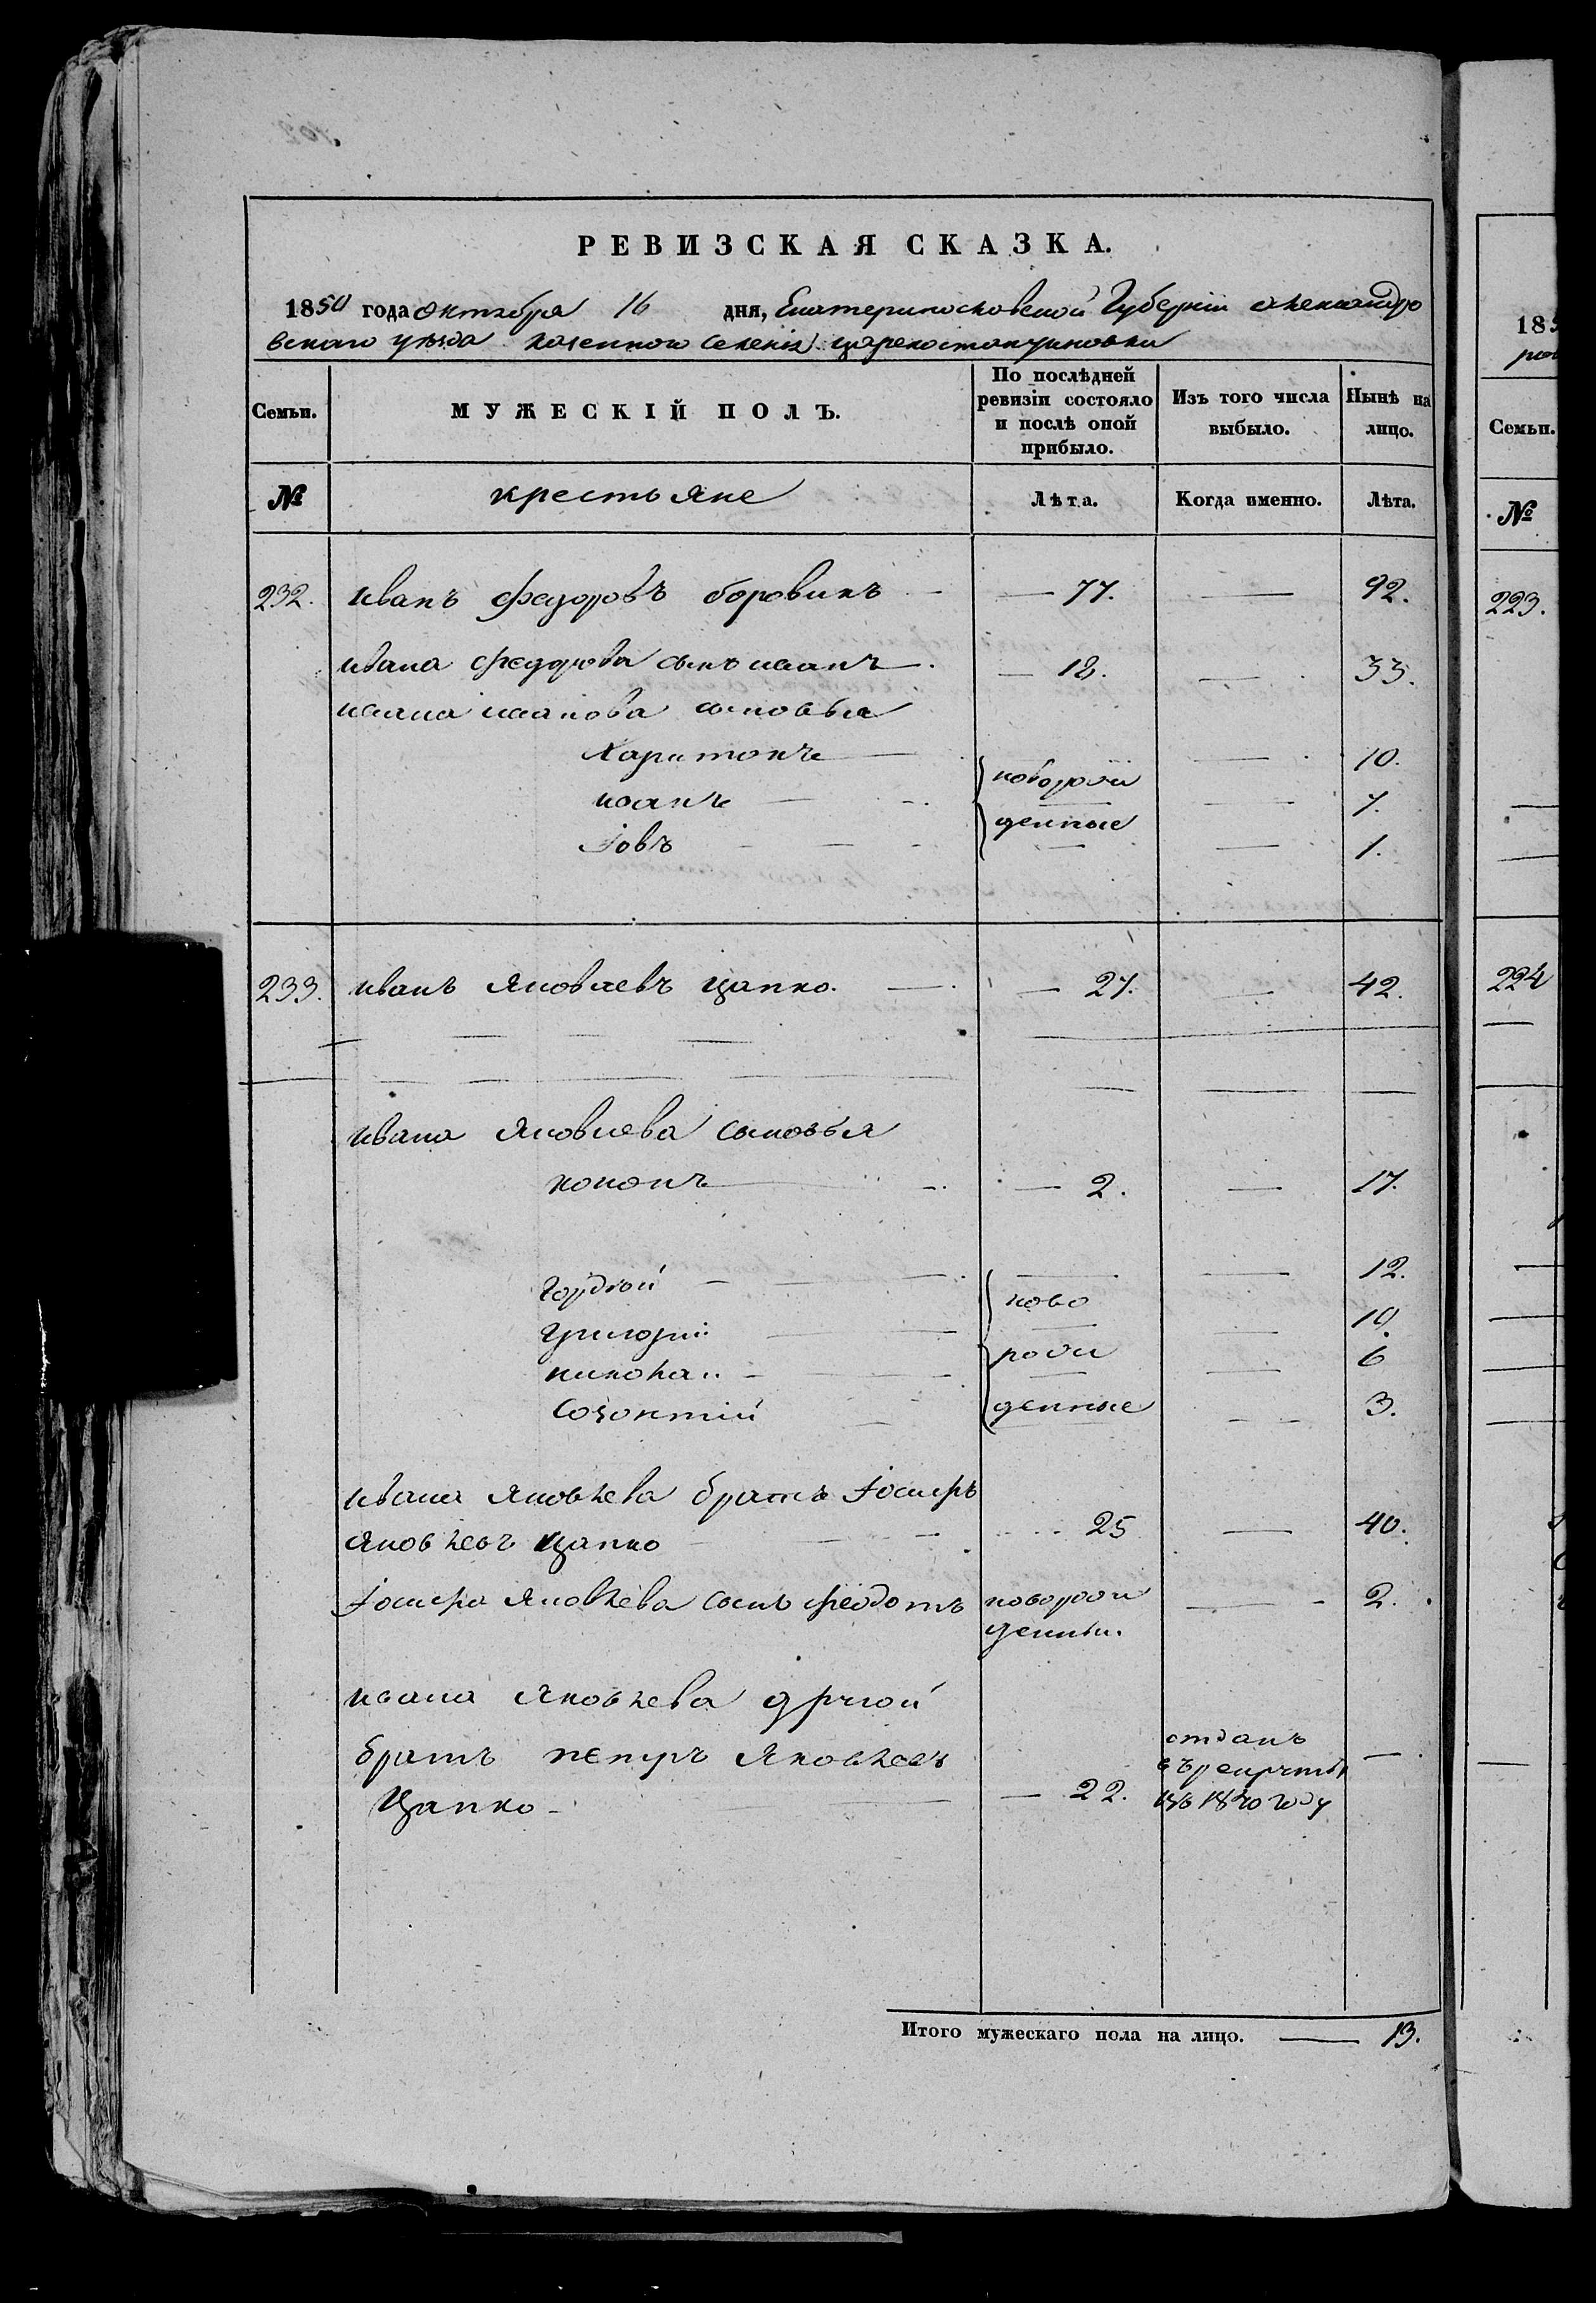 РЕВИЗСКАЯ СКАЗКА.
1850 года октября 16 дня, Екатериносковской Губерніи александро
вскаго уезда казенного селенія цареконстантиновки
Семьи. МУЖЕСКІЙ ПОЛЪ. По послѣдней ревизіи состояло и послѣ оной прибыло. Изъ того числа выбыло. Нынѣ на лицо.
№ крестьяне Лѣта. Когда именно. Лѣта.
232. иванъ федоровъ боровикъ — 77. — 92.
ивана федорова сынъ иванъ — 18. — 33.
ивана иванова сыновья
Харитонъ — 10.
новорож
иванъ — 7.
денные
Іовъ — 1.
233. иванъ яковлевъ цапко. — 27. — 42.
ивана яковлева сыновья
кононъ — 2. — 17.
Гордѣй — 12.
ново
григорій — 10.
рож
никола — 6
денные
Созонтій — 3.
ивана яковлева братъ Іосифъ
яковлевъ цапко 25 — 40.
Іосифа яковлева сынъ феодотъ новорож — 2.
денны.
ивана яковлева другой
братъ петръ яковлевъ
отданъ
въ рекруты
Цапко — 22. въ 1840 году —
Итого мужескаго пола на лицо. — 13.
185
Семьи.
№
223.
224